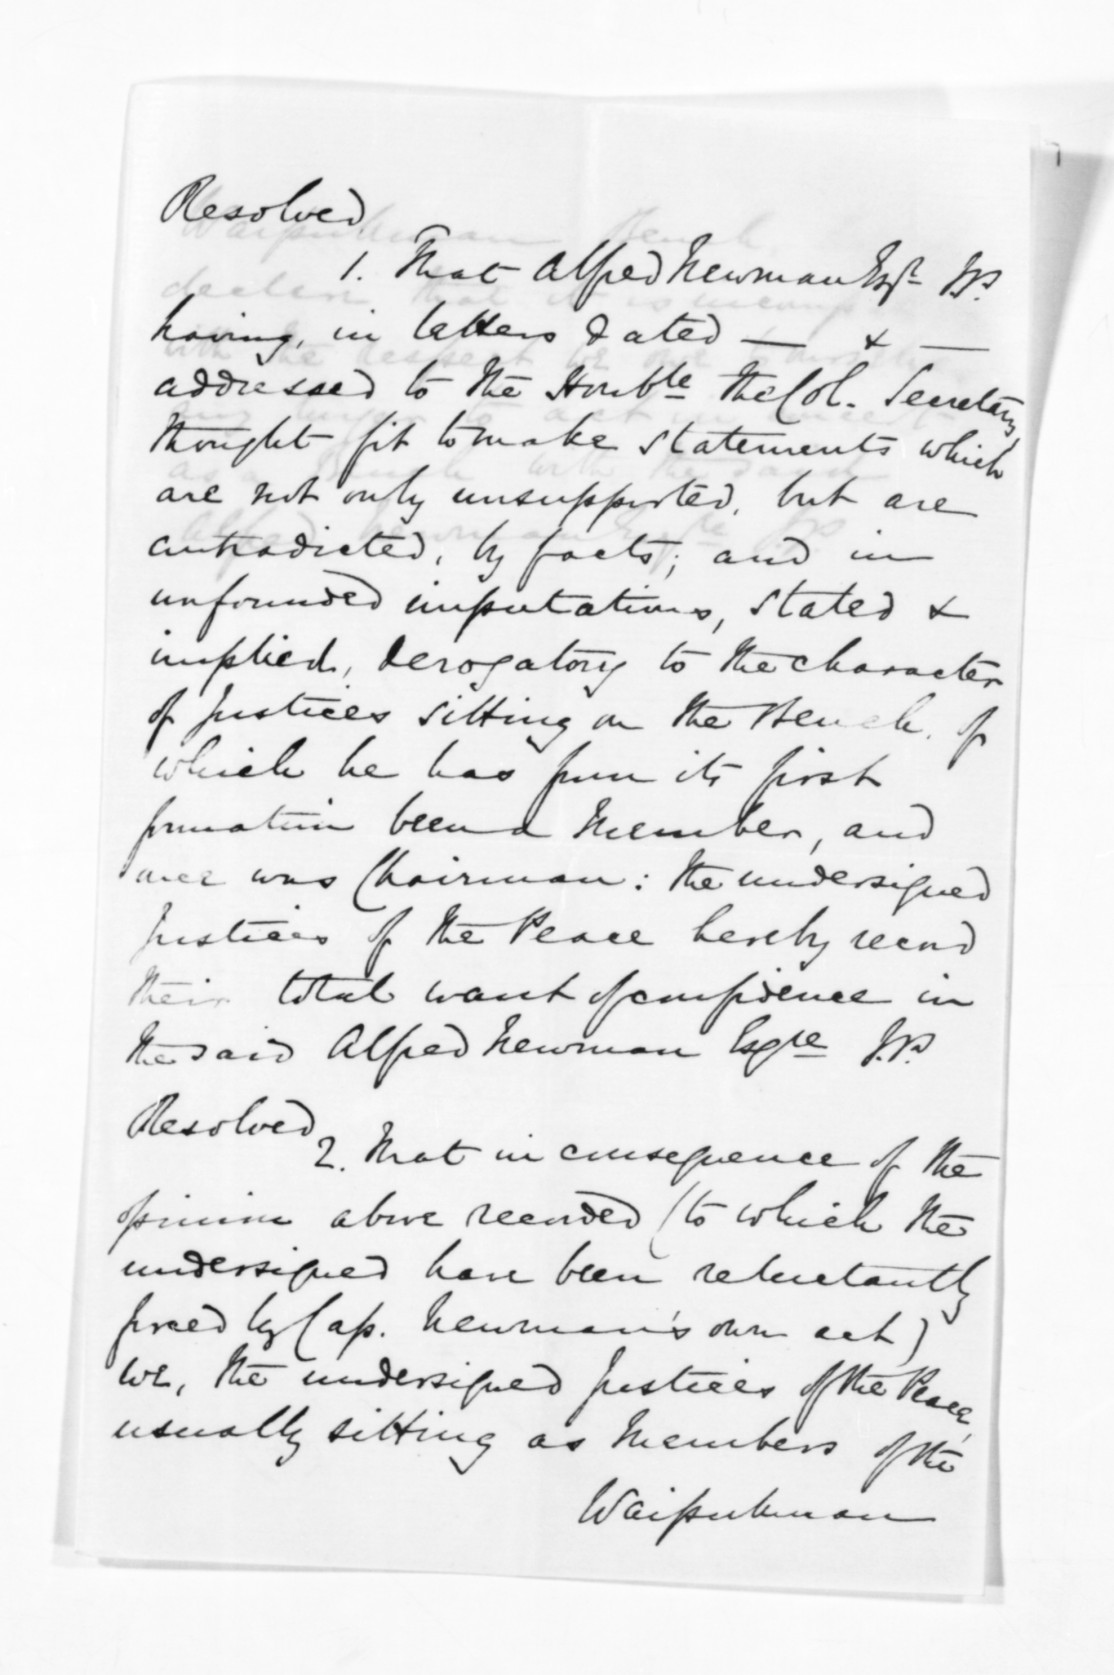 Resolved
1. That Alfred Newman Esqr. J.P.
having, in letters dated — & —
addressed to the Honble the Col. Secretary,
thought fit to make statements which
are not only unsupported, but are
contradicted, by facts; and in
unfounded imputations, stated &
implied, derogatory to the character
of Justices sitting on the Bench, of
which he has from its first
formation been a Member, and
once was Chairman: the undersigned
Justices of the Peace hereby record
their total want of confidence in
the said Alfred Newman Esqre J.P.
Resolved
2. That in consequence of the
opinion above recorded (to which the
undersigned have been reluctantly
forced by Cap. Newman's own act)
we, the undersigned Justices of the Peace,
usually sitting as Members of the
Waipukurau